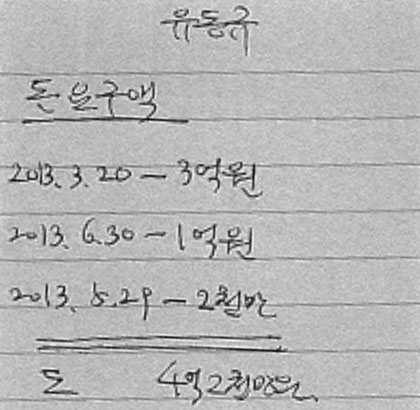 유동규
돈 요구액
2013. 3. 20 - 3억원
2013. 6.30 - 1억원
2013. 5.29 - 2천만
도 4억2천만원.